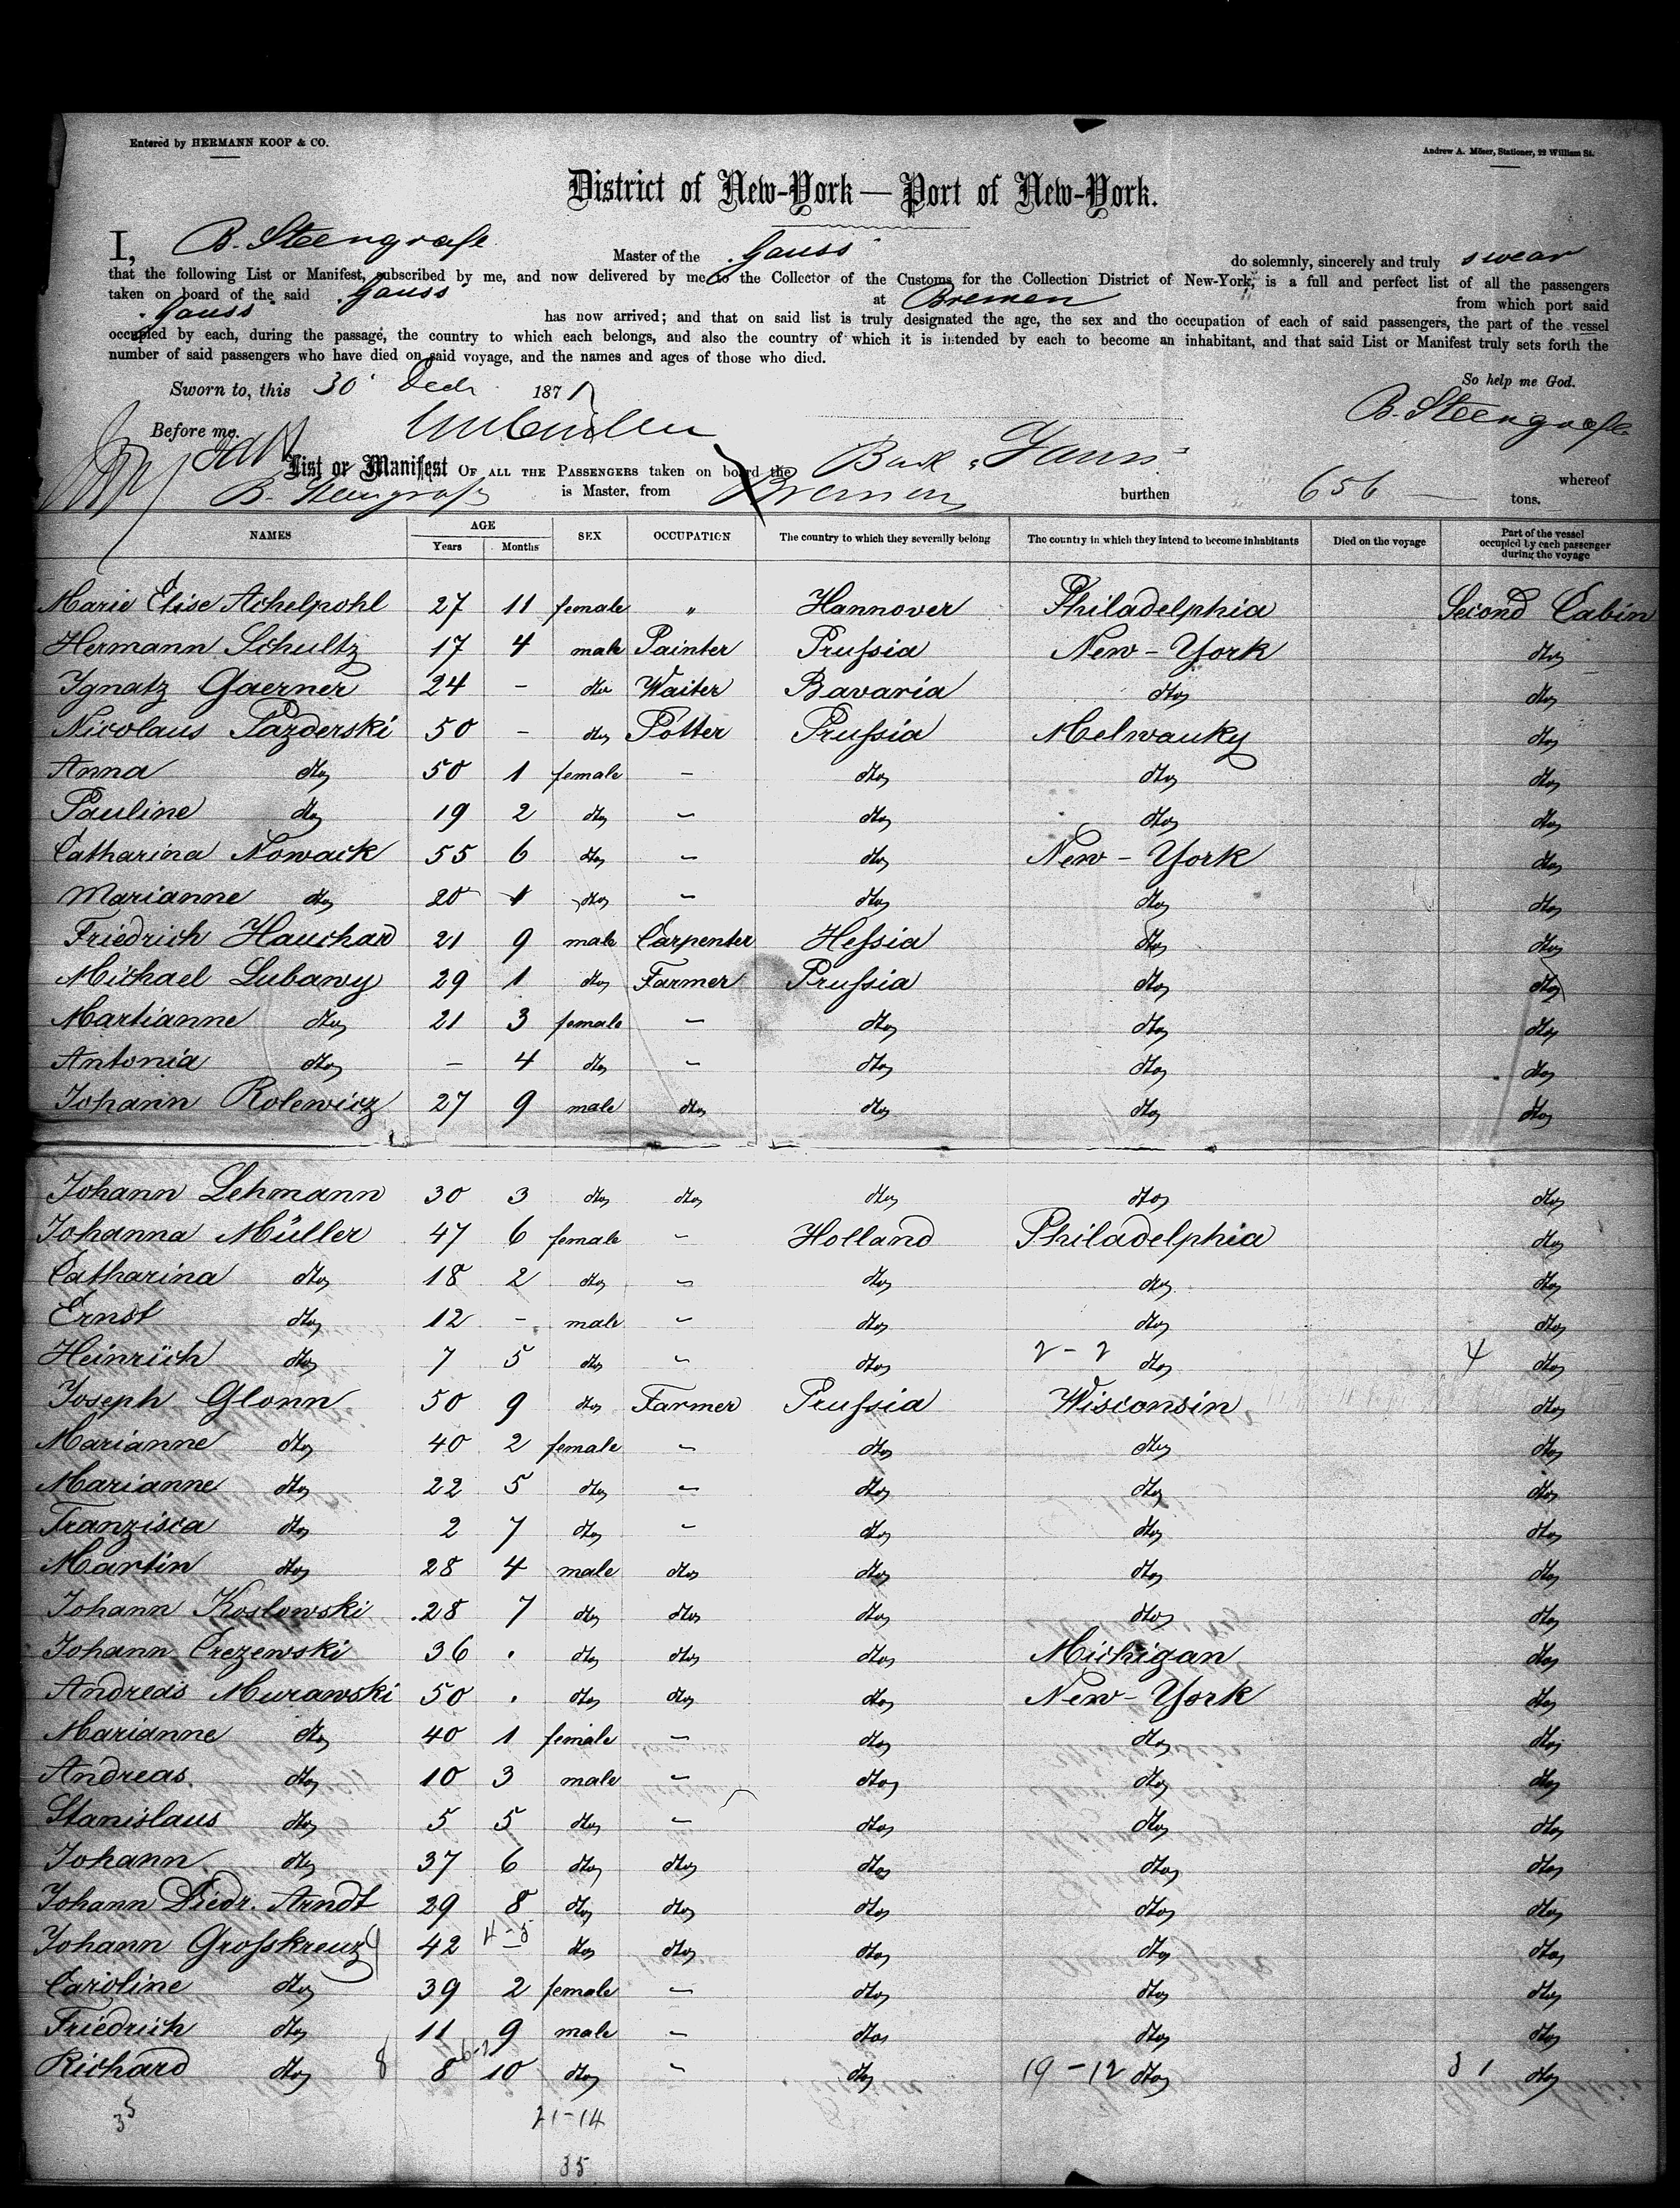 Entered by HERMANN KOOP & CO.
Andrew A. Möser, Stationer, 22 William St.
District of New-York — Port of New-York.
I, B. Steengrafe Master of the Gauss do solemnly, sincerely and truly swear
that the following List or Manifest, subscribed by me, and now delivered by me to the Collector of the Customs for the Collection District of New-York, is a full and perfect list of all the passengers
taken on board of the said Gauss at Bremen from which port said
Gauss has now arrived; and that on said list is truly designated the age, the sex and the occupation of each of said passengers, the part of the vessel
occupied by each, during the passage, the country to which each belongs, and also the country of which it is intended by each to become an inhabitant, and that said List or Manifest truly sets forth the
number of said passengers who have died on said voyage, and the names and ages of those who died.
Sworn to, this 30 Decbr 1871
So help me God.
Before me. B. Steengrafe
List or Manifest OF ALL THE PASSENGERS taken on board the Bark "Gauss" whereof
B. Steengrafe is Master, from Bremen burthen 656 — tons.
NAMES AGE Years Months SEX OCCUPATION The country to which they severally belong The country in which they intend to become inhabitants Died on the voyage Part of the vessel occupied by each passenger during the voyage
Marie Elise Achelpohl 27 11 female " Hannover Philadelphia Second Cabin
Hermann Schultz 17 4 male Painter Prussia New-York dto
Ignatz Gaerner 24 - dto Waiter Bavaria dto dto
Nicolaus Pazderski 50 - dto Potter Prussia Melwauky dto
Anna dto 50 1 female - dto dto dto
Pauline dto 19 2 dto - dto dto dto
Catharina Nowack 55 6 dto - dto New-York dto
Marianne dto 20 1 dto - dto dto dto
Friedrich Hauchar 21 9 male Carpenter Hessia dto dto
Michael Lubawy 29 1 dto Farmer Prussia dto dto
Martianne dto 21 3 female - dto dto dto
Antonia dto - 4 dto - dto dto dto
Johann Rolewicz 27 9 male dto dto dto dto
Johann Lehmann 30 3 dto dto dto dto dto
Johanna Müller 47 6 female - Holland Philadelphia dto
Catharina dto 18 2 dto - dto dto dto
Ernst dto 12 - male - dto dto dto
Heinrich dto 7 5 dto - dto 2-2 dto 4 dto
Joseph Glonn 50 9 dto Farmer Prussia Wisconsin dto
Marianne dto 40 2 female - dto dto dto
Marianne dto 22 5 dto - dto dto dto
Franzisca dto 2 7 dto - dto dto dto
Martin dto 28 4 male dto dto dto dto
Johann Koslowski 28 7 dto dto dto dto dto
Johann Crezewski 36 . dto dto dto Michigan dto
Andreas Murawski 50 . dto dto dto New-York dto
Marianne dto 40 1 female - dto dto dto
Andreas dto 10 3 male - dto dto dto
Stanislaus dto 5 5 dto - dto dto dto
Johann dto 37 6 dto dto dto dto dto
Johann Diedr. Arndt 29 8 dto dto dto dto dto
4-5
Johann Grosskreuz 42 - dto dto dto dto dto
Caroline dto 39 2 female - dto dto dto
Friedrich dto 11 9 male - dto dto dto
Richard dto 8 8 10 dto - dto 19-12 dto 31 dto
35 21-14
35